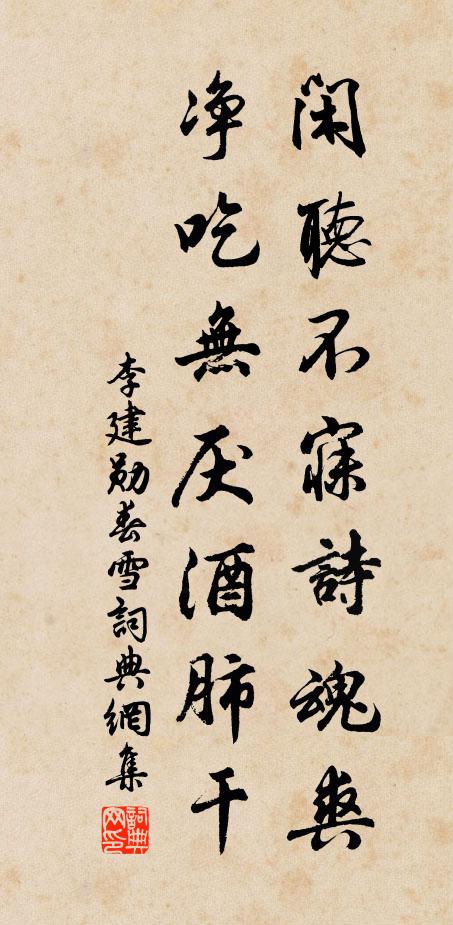 闲聽不寐詩魂爽
净吃無厌酒肺干
李建勋春雪詞典網集
詞典网印